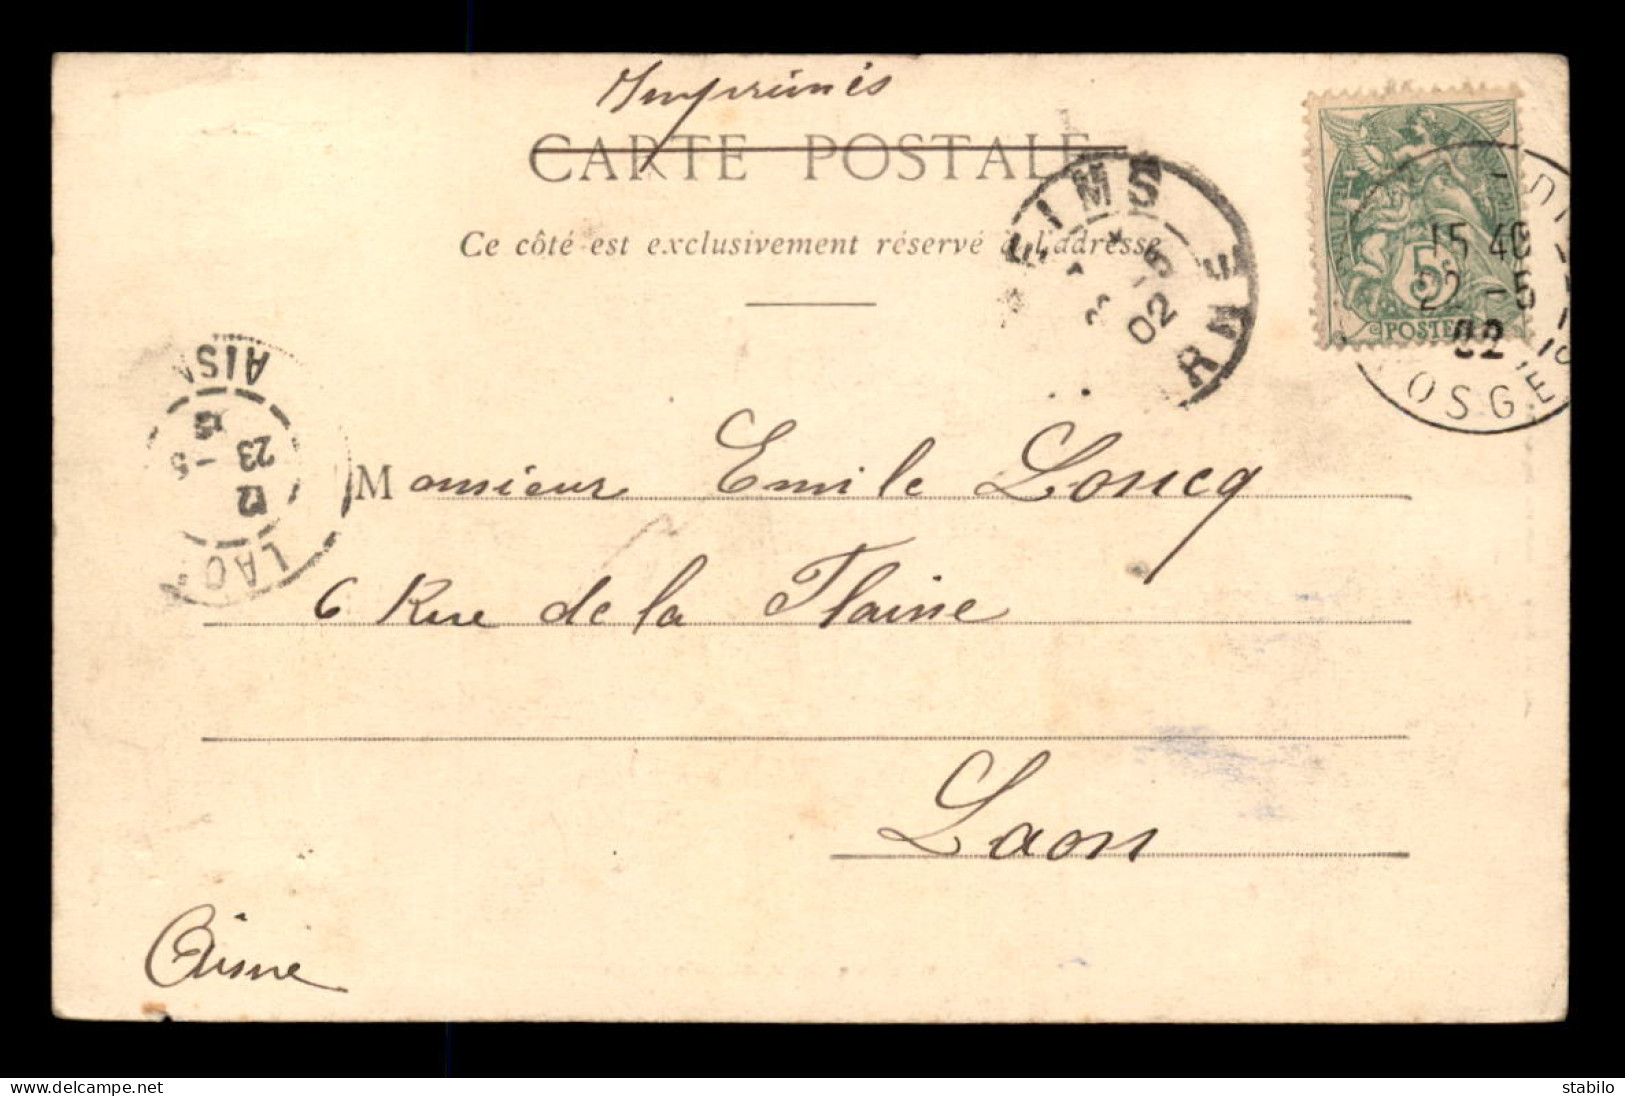 Imprimés
CARTE POSTALE
Ce côté est exclusivement réservé à l'adresse
EIMS
RNE
-5
02
15 40
22 -5
02
OSGE
5c
POSTE
AIS
23 -5
LAO
Monsieur Emile Loucq
6 Rue de la Plaine
Laon
Aisne
delcampe.net
stabilo